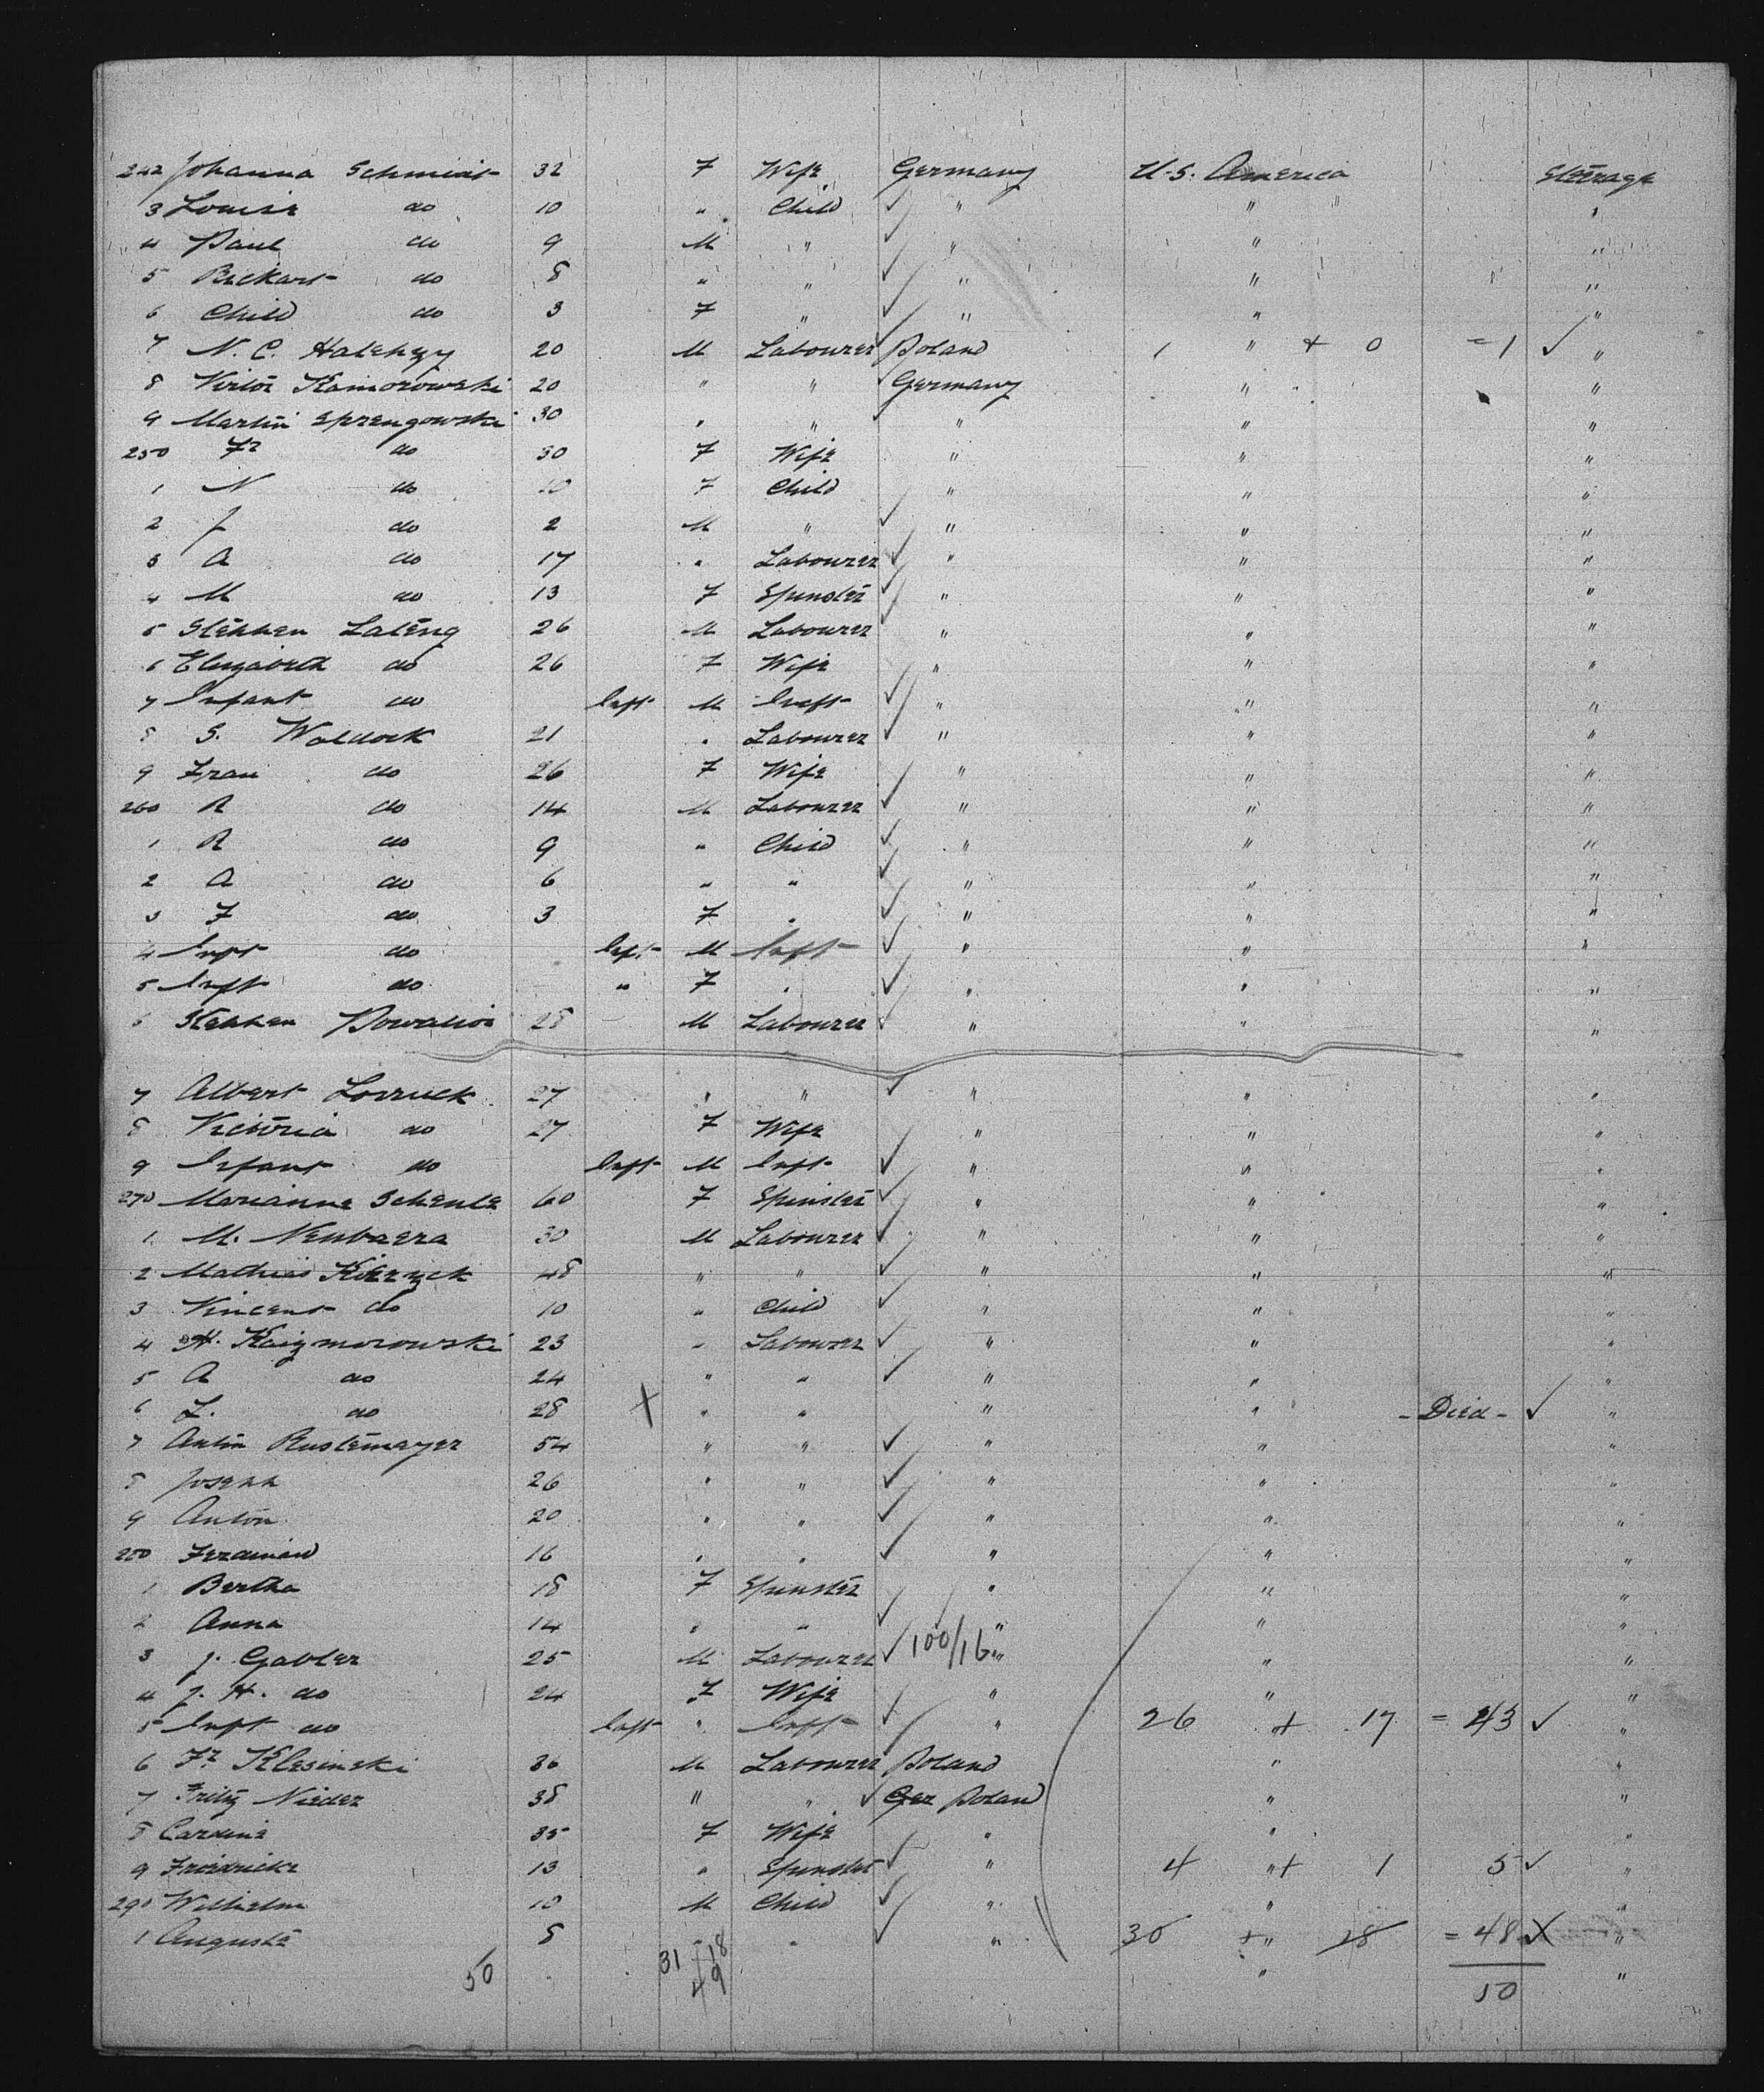 242 Johanna Schmidt 32 F Wife Germany U.S. America Steerage
3 Louise do 10 " Child ✓ " " "
4 Paul do 9 M " ✓ " " "
5 Rickart do 8 " " ✓ " " "
6 Child do 3 F " ✓ " " "
7 N. C. 20 M Labourer ✓ Poland 1 " + 0 = 1 ✓ "
8 Victor Kamorowski 20 " " ✓ Germany " "
9 Martin Sprengowski 30 " " " " "
250 Fr do 30 F Wife " " "
1 N do 10 F Child " " "
2 J do 2 M " ✓ " " "
3 A do 17 " Labourer ✓ " " "
4 M do 13 F Spinster ✓ " " "
5 Stephen Lateng 26 M Labourer " " "
6 Elizabeth do 26 F Wife " " "
7 Infant do Inft M Inft ✓ " " "
8 S. Woldock 21 " Labourer ✓ " " "
9 Frau do 26 F Wife " " "
260 R do 14 M Labourer ✓ " " "
1 R do 9 " Child ✓ " " "
2 A do 6 " " ✓ " " "
3 F do 3 F " ✓ " " "
4 Inft do Inft M Inft ✓ " " "
5 Inft do " F " ✓ " " "
6 Stephen 28 M Labourer ✓ " " "
7 Albert Lorruck 27 " " ✓ " " "
8 Victoria do 27 F Wife " " "
9 Infant do Inft M Inft ✓ " " "
270 Marianne Schente 60 F Spinster ✓ " " "
1 M. Neubaera 30 M Labourer ✓ " " "
2 Mathias 48 " " ✓ " " "
3 Vincent do 10 " Child ✓ " " "
4 H. Kaizmorowski 23 " Labourer ✓ " " "
5 A do 24 " " ✓ " " "
6 L. do 28 X " " " " - Died - ✓ "
7 Anton Rustemayer 54 " " ✓ " " "
8 Joseph 26 " " ✓ " " "
9 Anton 20 " " ✓ " " "
280 Ferdinand 16 " " ✓ " " "
1 Bertha 18 F Spinster " " "
2 Anna 14 " " ✓ " " "
3 J. Gabler 25 M Labourer ✓ 100/16 " " "
4 J. H. do 24 F Wife " " "
5 Inft do Inft " Inft ✓ " 26 + 17 = 43 ✓ "
6 Fr. Klesinski 36 M Labourer Poland " "
7 Fritz Nieder 38 " " ✓ Ger Poland " "
8 Cardine 35 F Wife " " "
9 Friedricke 13 " Spinster ✓ " 4 " + 1 5 ✓ "
290 Wilhelm 10 M Child ✓ " " "
1 Auguste 8 " " ✓ " 30 + " 18 = 48 X "
50 31 + 18 " "
49 50